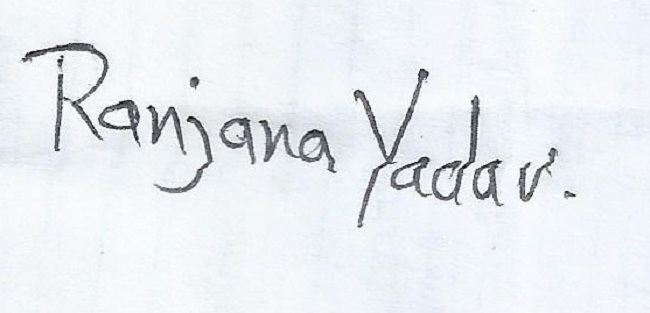 Ranjana Yadav.